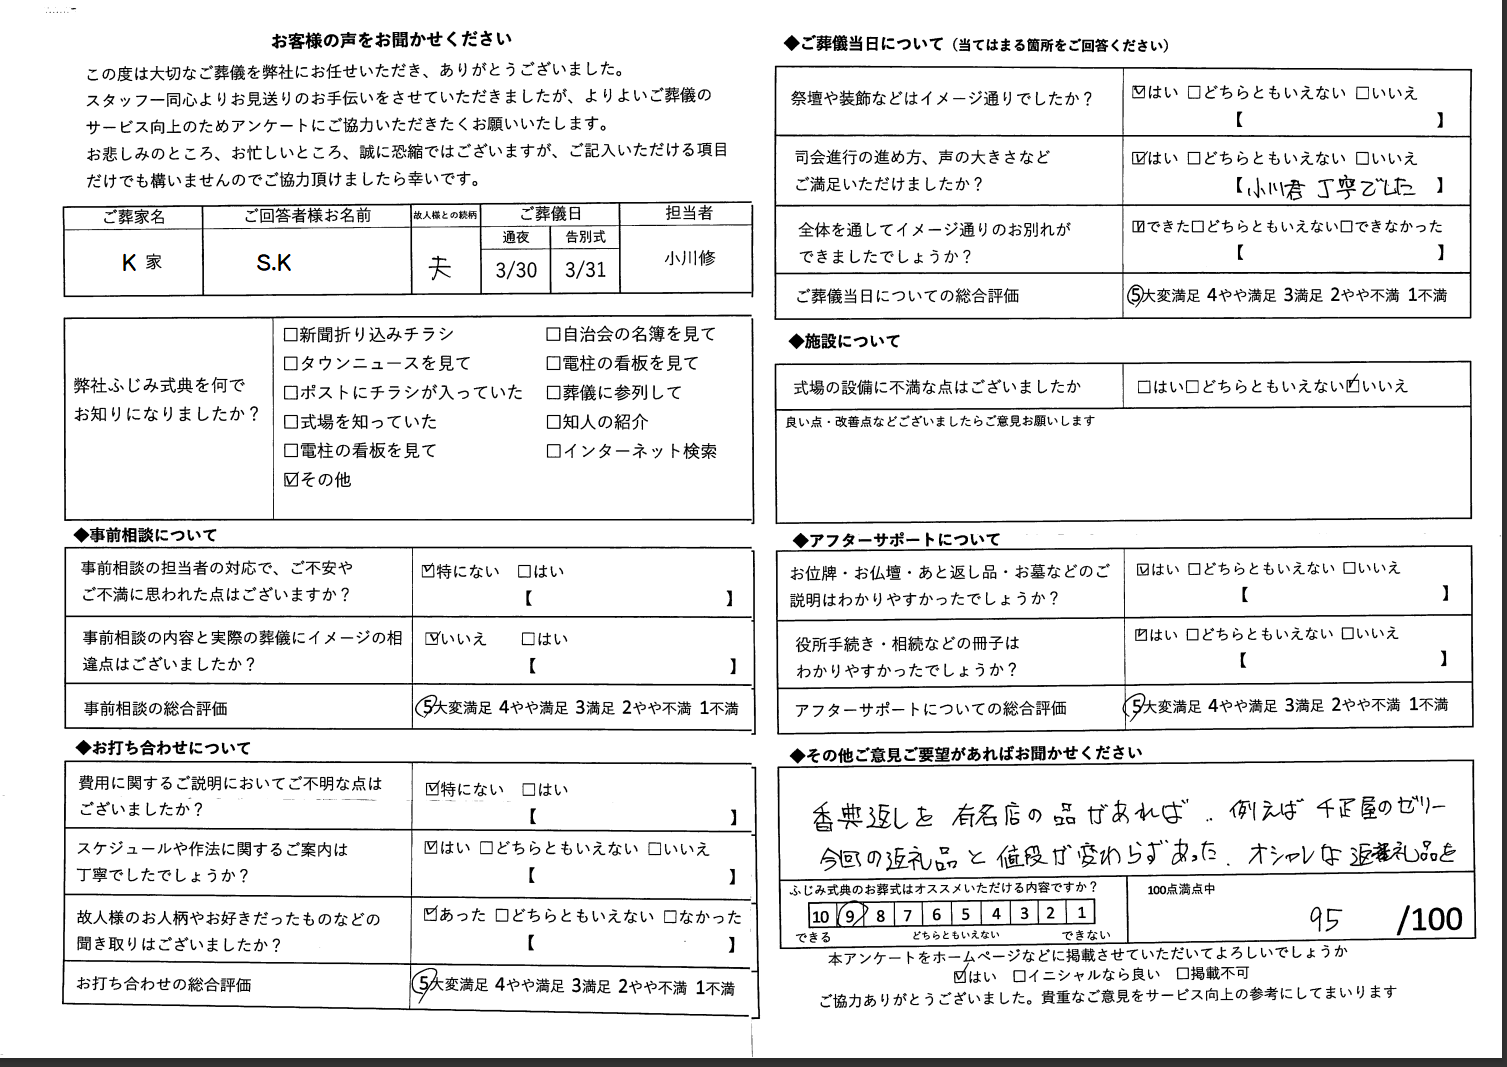 お客様の声をお聞かせください
この度は大切なご葬儀を弊社にお任せいただき、ありがとうございました。
スタッフ一同心よりお見送りのお手伝いをさせていただきましたが、よりよいご葬儀の
サービス向上のためアンケートにご協力いただきたくお願いいたします。
お悲しみのところ、お忙しいところ、誠に恐縮ではございますが、ご記入いただける項目
だけでも構いませんのでご協力頂けましたら幸いです。
ご葬家名 ご回答者様お名前 故人様との続柄 ご葬儀日 担当者
通夜 告別式
K 家 S.K 夫 3/30 3/31 小川修
弊社ふじみ式典を何で
お知りになりましたか？
☐新聞折り込みチラシ ☐自治会の名簿を見て
☐タウンニュースを見て ☐電柱の看板を見て
☐ポストにチラシが入っていた ☐葬儀に参列して
☐式場を知っていた ☐知人の紹介
☐電柱の看板を見て ☐インターネット検索
☑その他
◆事前相談について
事前相談の担当者の対応で、ご不安や
ご不満に思われた点はございますか？
☑特にない ☐はい
【 】
事前相談の内容と実際の葬儀にイメージの相
違点はございましたか？
☑いいえ ☐はい
【 】
事前相談の総合評価 5大変満足 4やや満足 3満足 2やや不満 1不満
◆お打ち合わせについて
費用に関するご説明においてご不明な点は
ございましたか？
☑特にない ☐はい
【 】
スケジュールや作法に関するご案内は
丁寧でしたでしょうか？
☑はい ☐どちらともいえない ☐いいえ
【 】
故人様のお人柄やお好きだったものなどの
聞き取りはございましたか？
☑あった ☐どちらともいえない ☐なかった
【 】
お打ち合わせの総合評価 5大変満足 4やや満足 3満足 2やや不満 1不満
◆ご葬儀当日について（当てはまる箇所をご回答ください）
祭壇や装飾などはイメージ通りでしたか？
☑はい ☐どちらともいえない ☐いいえ
【 】
司会進行の進め方、声の大きさなど
ご満足いただけましたか？
☑はい ☐どちらともいえない ☐いいえ
【小川君 丁寧でした 】
全体を通してイメージ通りのお別れが
できましたでしょうか？
☑できた☐どちらともいえない☐できなかった
【 】
ご葬儀当日についての総合評価 5大変満足 4やや満足 3満足 2やや不満 1不満
◆施設について
式場の設備に不満な点はございましたか ☐はい☐どちらともいえない☑いいえ
良い点・改善点などございましたらご意見お願いします
◆アフターサポートについて
お位牌・お仏壇・あと返し品・お墓などのご
説明はわかりやすかったでしょうか？
☑はい ☐どちらともいえない ☐いいえ
【 】
役所手続き・相続などの冊子は
わかりやすかったでしょうか？
☑はい ☐どちらともいえない ☐いいえ
【 】
アフターサポートについての総合評価 5大変満足 4やや満足 3満足 2やや不満 1不満
◆その他ご意見ご要望があればお聞かせください
香典返しを 有名店の品があれば‥例えば千疋屋のゼリー
今回の返礼品と値段が変わらずあった、オシャレな返礼品を
ふじみ式典のお葬式はオススメいただける内容ですか？
10 9 8 7 6 5 4 3 2 1
できる どちらともいえない できない
100点満点中
95 /100
本アンケートをホームページなどに掲載させていただいてよろしいでしょうか
☑はい ☐イニシャルなら良い ☐掲載不可
ご協力ありがとうございました。貴重なご意見をサービス向上の参考にしてまいります